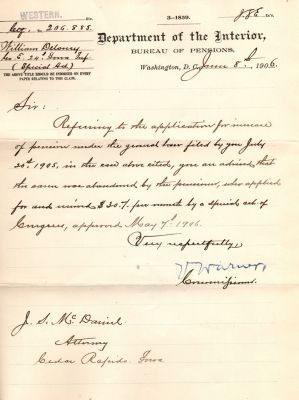 WESTERN. Div.
3-1859.
Ctf. 206.885.
William Deloney
Co. E. 24" Iowa Inf
(Special Act)
THE ABOVE TITLE SHOULD BE ENDORSED ON EVERY
PAPER RELATING TO THIS CLAIM.
Department of the Interior,
BUREAU OF PENSIONS,
Washington, D. C., June 8th, 1906.
Sir:
Referring to the application for increase
of pension under the general law filed by you July
20th 1905, in the case above cited, you are advised that
the same was abandoned by the pensioner, who applied
for and received $30. per month by a special act of
Congress, approved May 7th 1906.
Very respectfully,
V Warner
Commissioner.
J. S. McDaniel.
Attorney
Cedar Rapids. Iowa